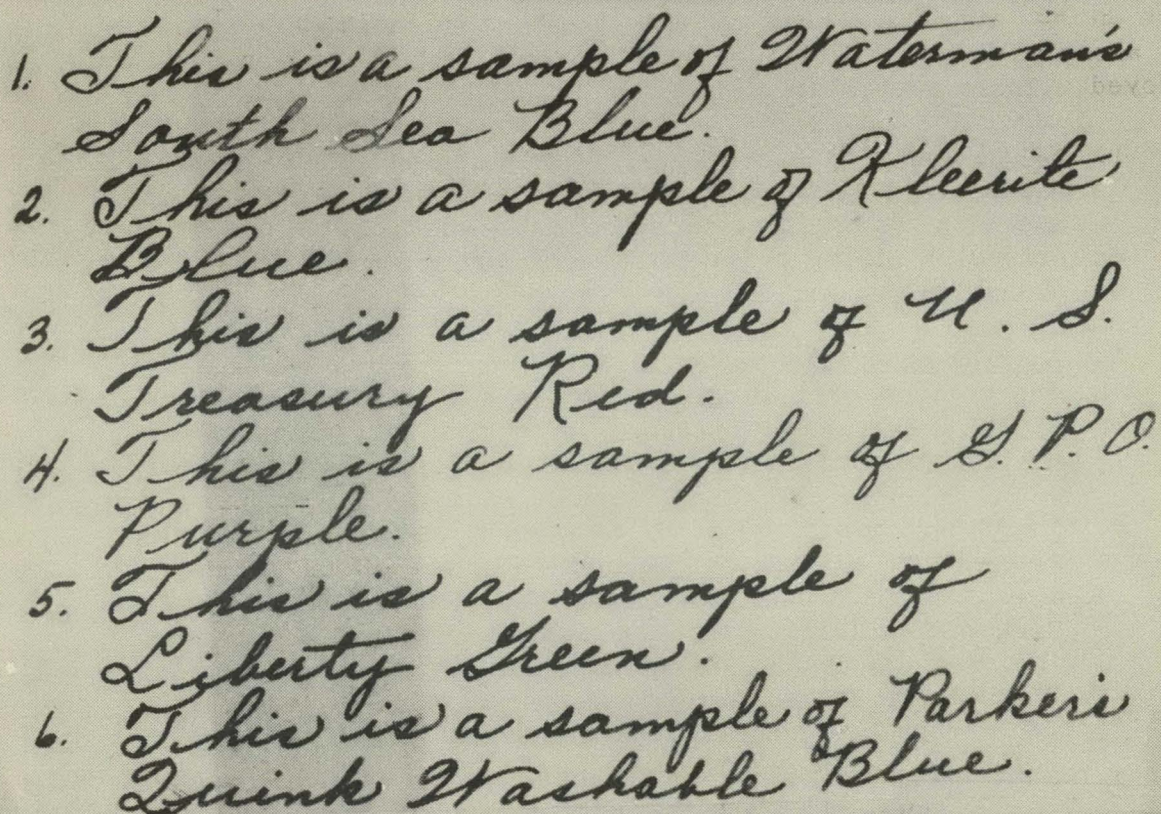 1. This is a sample of Waterman's
South Sea Blue.
2. This is a sample of Kleerite
Blue.
3. This is a sample of U. S.
Treasury Red.
4. This is a sample of G. P. O.
Purple.
5. This is a sample of
Liberty Green.
6. This is a sample of Parker's
Quink Washable Blue.